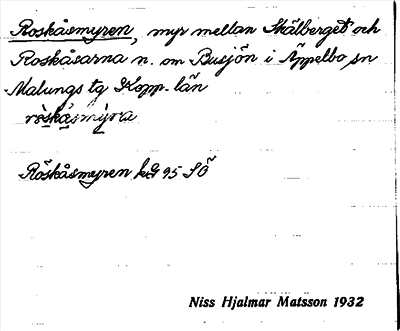 Roskåsmyren, myr mellan Skålberget och
Roskåsarna n. om Busjön i Äppelbo sn
Malungs tg Kopp. län
röskåsmýra
Röskåsmyren kG 95 SÖ
Niss Hjalmar Matsson 1932